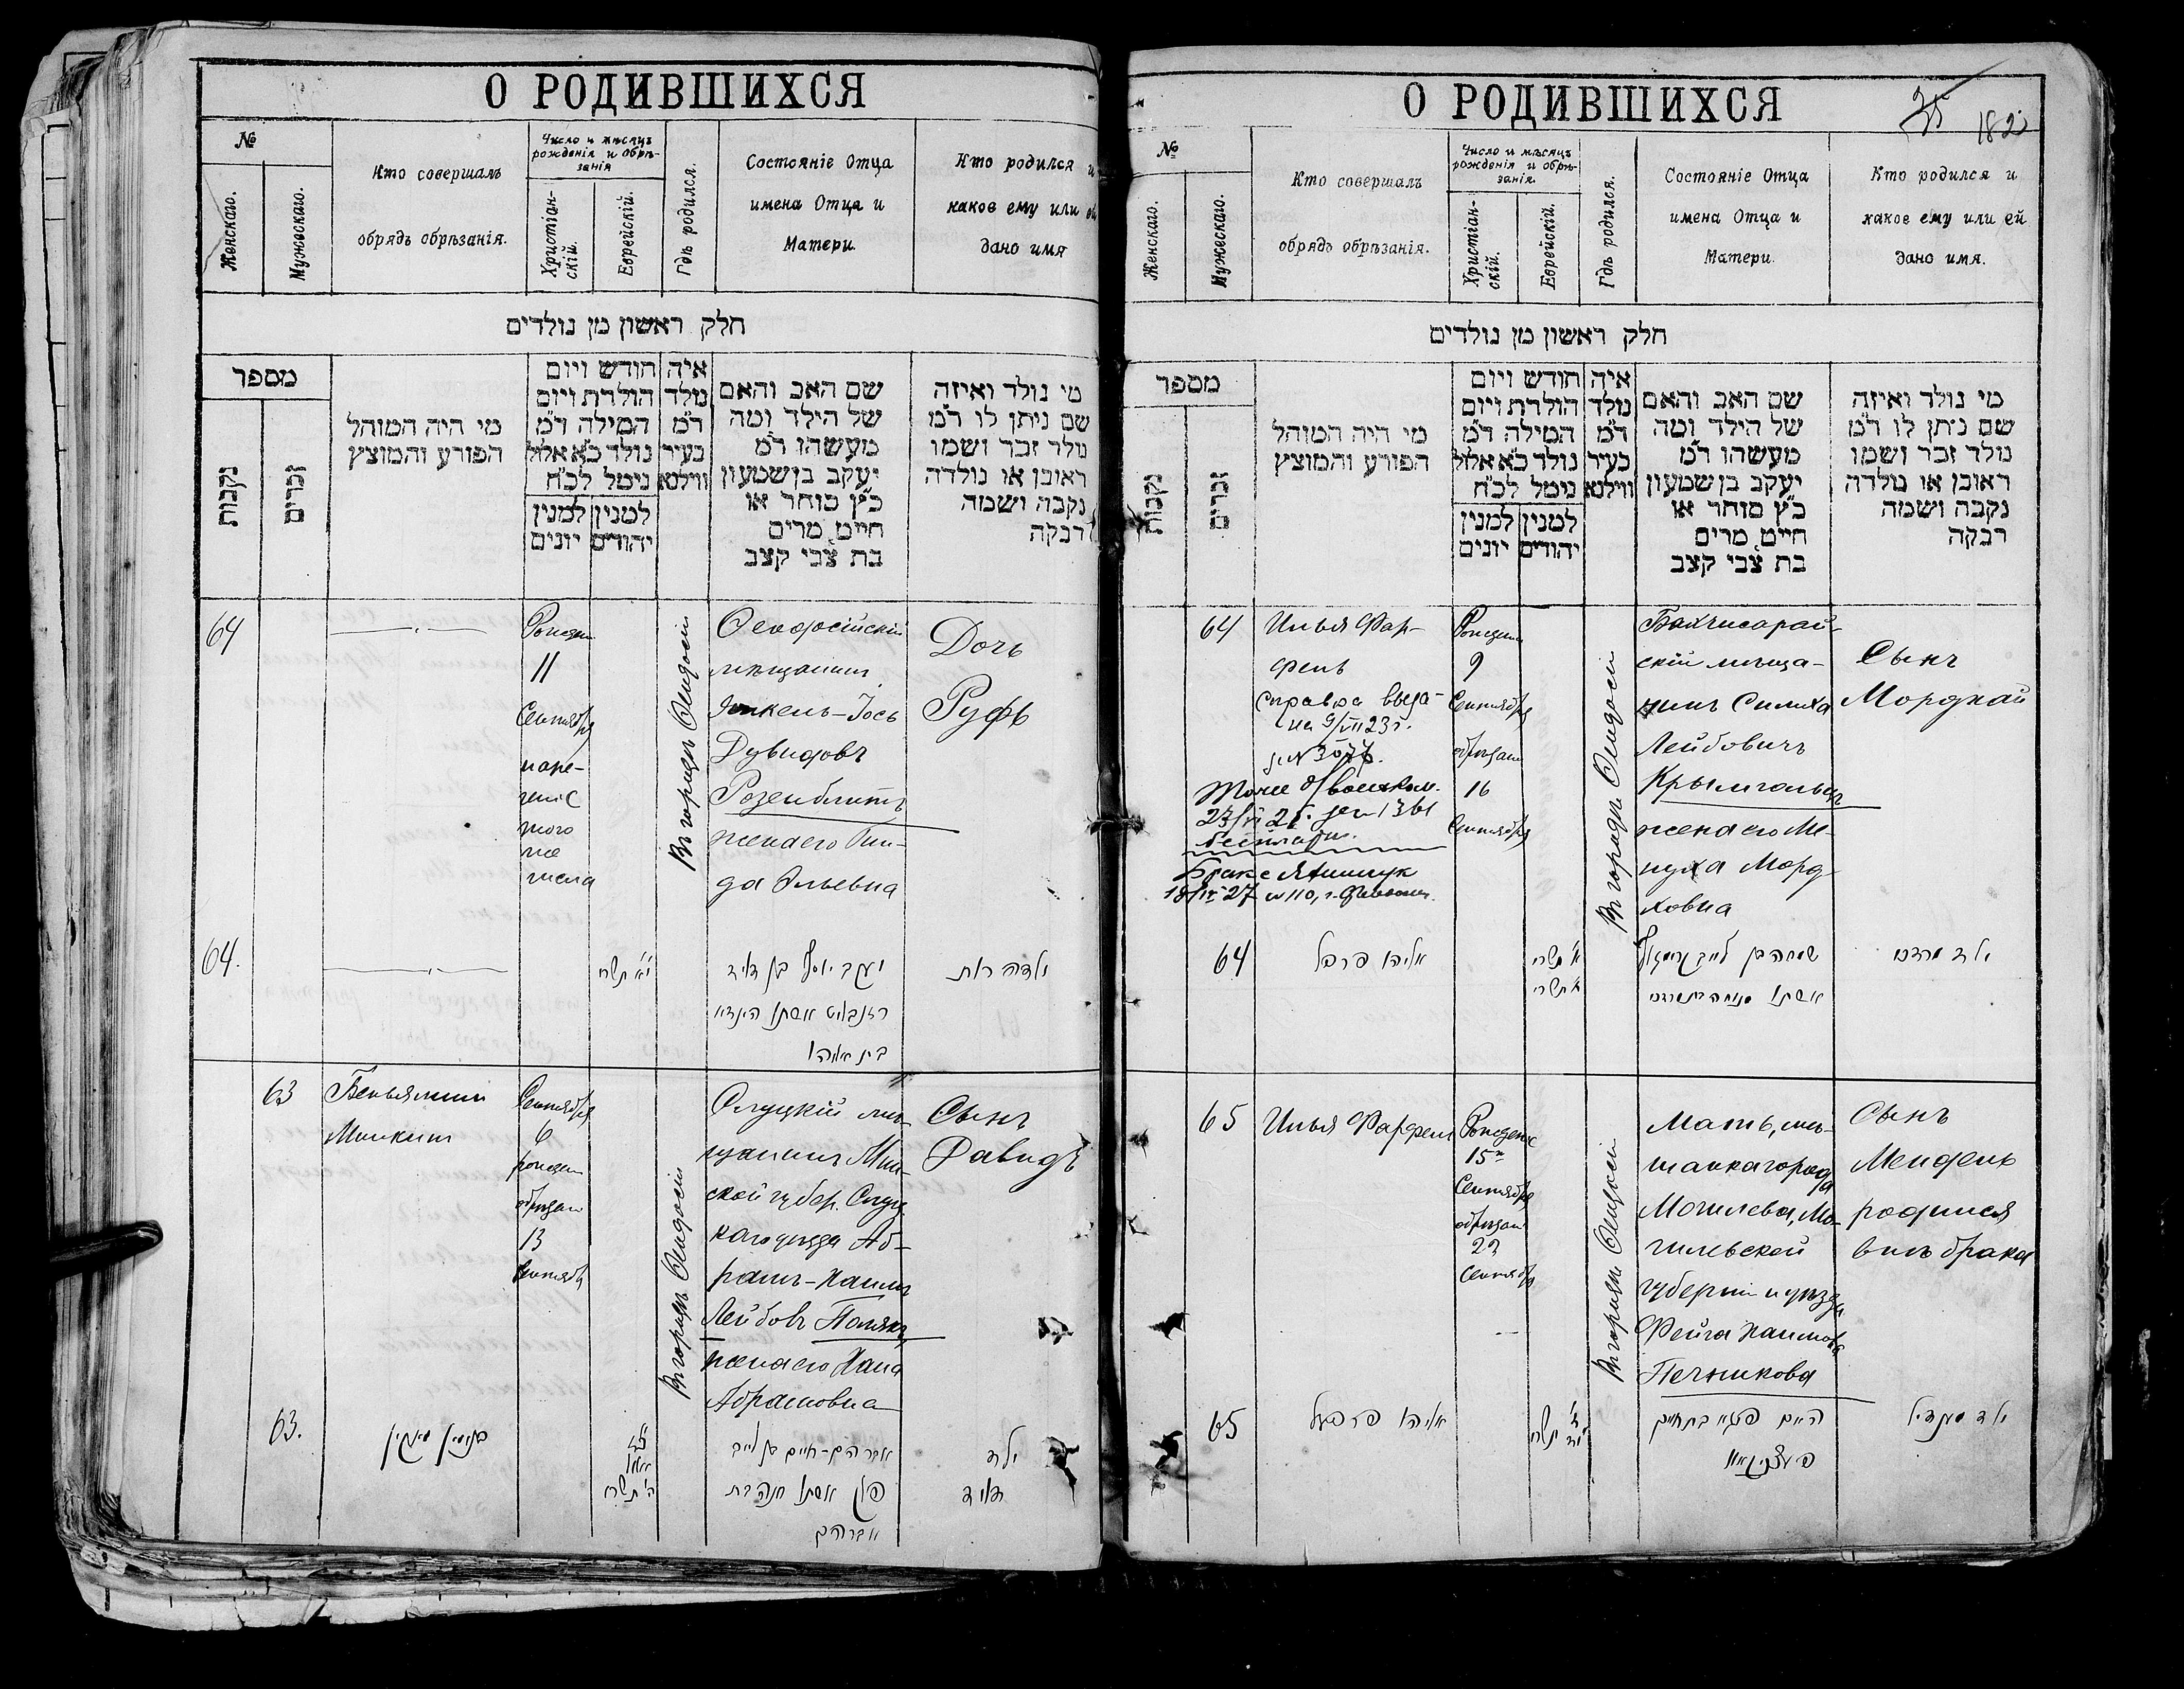 О РОДИВШИХСЯ
№
Женскаго.
Мужескаго.
Кто совершалъ
обрядъ обрѣзанія.
Число и мѣсяцъ
рожденія и обрѣ-
занія
Христіан-
скій.
Еврейскій.
Гдѣ родился.
Состояніе Отца
имена Отца и
Матери.
Кто родился и
какое ему или ей
дано имя
חלק ראשון מן נולדים
מספר
נקבות
זכרים
מי היה המוהל
הפורע והמוצץ
חודש ויום
הולדת ויום
המילה ד״מ
נולד כ״א אלול
נימל לכ״ח
למנין למנין
יהודים יונים
איה
נולד
ד״מ
בעיר
ווילנא
שם האב והאם
של הילד ומה
מעשהו ד״מ
יעקב בן שמעון
כ״ץ סוחר או
חייט מרים
בת צבי קצב
מי נולד ואיזה
שם ניתן לו ד״מ
נולד זכר ושמו
ראובן או נולדה
נקבה ושמה
רבקה
64
Рожден
11
Сентября
наре-
ченіе
того
же
числа
Въ городѣ Ѳеодосіи
Ѳеодосійскій
мѣщанинъ
Янкель-Іось
Дувидовъ
Розенблитъ
жена его Гин-
да Эльевна
Дочь
Руфь
64.
י״א תשרי
יעקב יוסף בן דוד
רזנבליט אשתו הינדא
בת אליהו
ילדה רות
63
Беньяминъ
Минкинъ
Сентября
6
рожден
обрѣзан
13
Сентября
Въ городѣ Ѳеодосіи
Слуцкій мѣ-
щанинъ Мин-
ской губер. Слуц-
каго уѣзда Аб-
рамъ-Хаимъ
Лейбовъ Полякъ
жена его Хана
Абрамовна
Сынъ
Давидъ
63.
בנימין מינקין
ה׳ תשרי
אברהם-חיים בן לייב
פולק אשתו חנה בת
אברהם
ילד
דוד
О РОДИВШИХСЯ
35
182
№
Женскаго.
Мужескаго.
Кто совершалъ
обрядъ обрѣзанія.
Число и мѣсяцъ
рожденія и обрѣ-
занія.
Христіан-
скій.
Еврейскій.
Гдѣ родился.
Состояніе Отца
имена Отца и
Матери.
Кто родился и
какое ему или ей
дано имя.
חלק ראשון מן נולדים
מספר
נקבות
זכרים
מי היה המוהל
הפורע והמוצץ
חודש ויום
הולדת ויום
המילה ד״מ
נולד כ״א אלול
נימל לכ״ח
למנין למנין
יהודים יונים
איה
נולד
ד״מ
בעיר
ווילנא
שם האב והאם
של הילד ומה
מעשהו ד״מ
יעקב בן שמעון
כ״ץ סוחר או
חייט מרים
בת צבי קצב
מי נולד ואיזה
שם ניתן לו ד״מ
נולד זכר ושמו
ראובן או נולדה
נקבה ושמה
רבקה
64
Илья Фар-
фель
справка выда-
на 9/VII 23 г.
№ 3077.
Тоже
бесплатн.
Брак с
18/IX 27 №110, г.
Рожден
9
Сентября
обрѣзан
16
Сентября
Въ городѣ Ѳеодосіи
Бахчисарай-
скій мѣща-
нинъ Симха
Лейбовичъ
Крымгольцъ
жена его Ме-
нуха Морд-
ховна
Сынъ
Мордхай
64
אליהו פרפל
תשרי
תשרי
שמחה בן לייב קרימגולץ
אשתו מנוחה בת מרדכי
ילד מרדכי
65
Илья Фарфель
Рожденъ
15го
Сентября
обрѣзан
22
Сентября
Въ городѣ Ѳеодосіи
Мать, мѣ-
щанка города
Могилева, Мо-
гилевской
губерніи и уѣзда
Фейга Хаимовна
Печникова
Сынъ
Мендель
родился
внѣ брака
65
אליהו פרפעל
תשרי
האם פייגא בת חיים
פעצניקאווא
ילד מענדיל